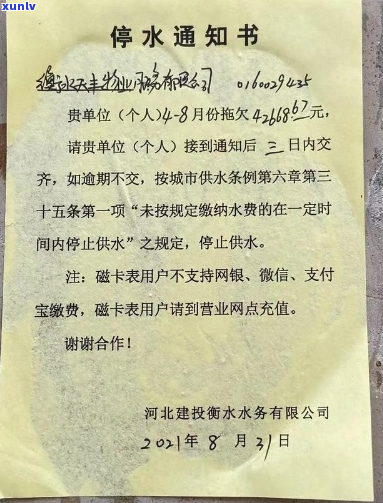 xunlv
停水通知书
衡水天丰物业服务有限公司 0160029435
贵单位（个人）4-8月份拖欠42668.67元，
请贵单位（个人）接到通知后三日内交
齐，如逾期不交，按城市供水条例第六章第三
十五条第一项“未按规定缴纳水费的在一定时
间内停止供水”之规定，停止供水。
注：磁卡表用户不支持网银、微信、支付
宝缴费，磁卡表用户请到营业网点充值。
谢谢合作！
河北建投衡水水务有限公司
2021年8月31日